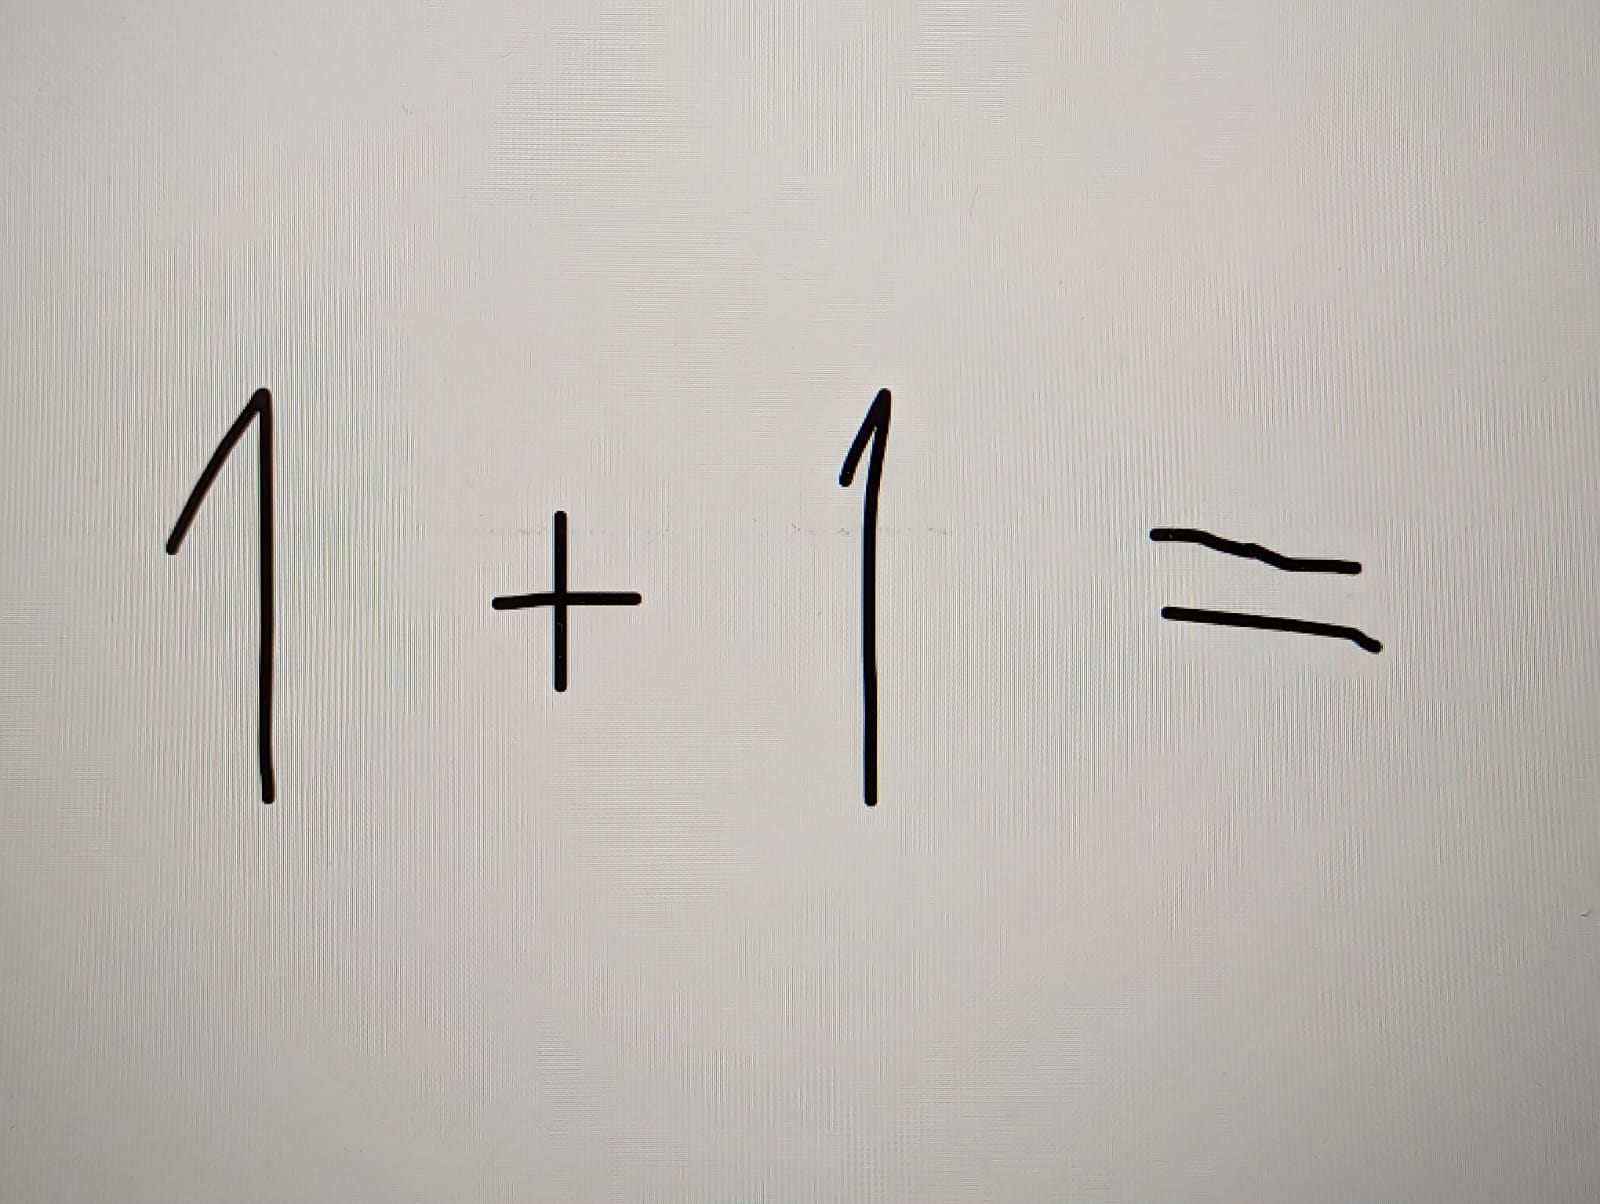 1 + 1 =